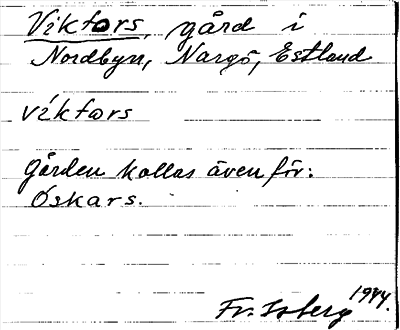 Viktors, gård i
Nordbyn, Nargö, Estland
víktars
Gården kallas även för:
Óskars.
Fr. Isberg 1944.